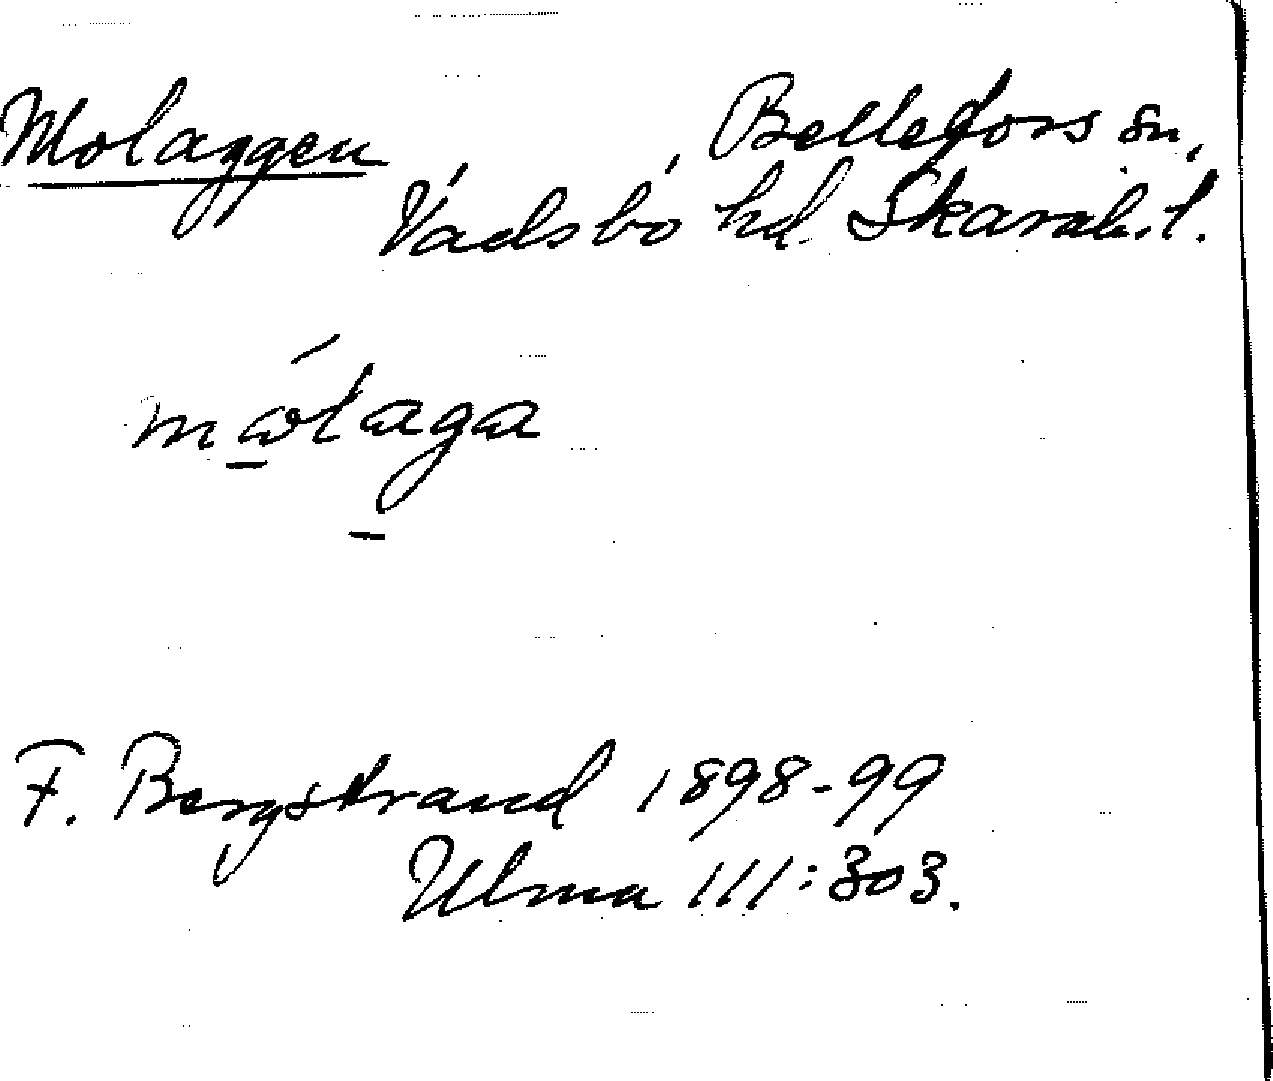 Molaggen Bellefors sn,
Vadsbo hd. Skarab.l.
F. Bergstrand 1898-99
Ulma 111:303.